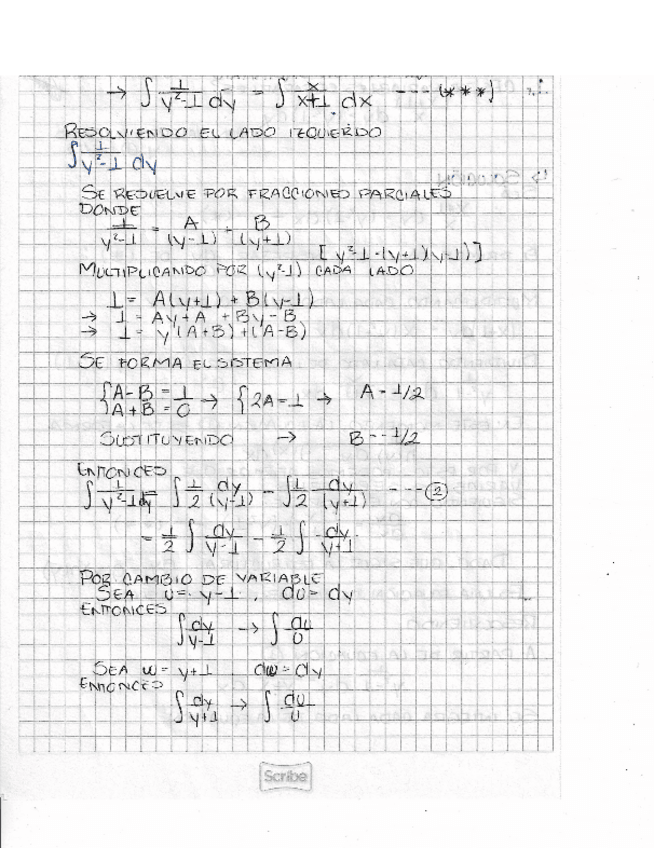 → ∫ 1/(y²-1) dy = ∫ x/(x+1) dx --- (***)
RESOLVIENDO EL LADO IZQUIERDO
∫ 1/(y²-1) dy
SE RESUELVE POR FRACCIONES PARCIALES
DONDE
1/(y²-1) = A/(y-1) + B/(y+1)
[y²-1=(y+1)(y-1)]
MULTIPLICANDO POR (y²-1) CADA LADO
1 = A(y+1) + B(y-1)
→ 1 = Ay+A + By-B
→ 1 = y(A+B)+(A-B)
SE FORMA EL SISTEMA
{A-B = 1
A+B = 0 → {2A=1 → A=1/2
SUSTITUYENDO → B=-1/2
ENTONCES
∫ 1/(y²-1) dy = ∫ 1/2 dy/(y-1) - ∫ 1/2 dy/(y+1) --- ②
= 1/2 ∫ dy/(y-1) - 1/2 ∫ dy/(y+1)
POR CAMBIO DE VARIABLE
SEA u = y-1, du = dy
ENTONCES
∫ dy/(y-1) → ∫ du/u
SEA w = y+1 dw = dy
ENTONCES
∫ dy/(y+1) → ∫ du/u
Scribe